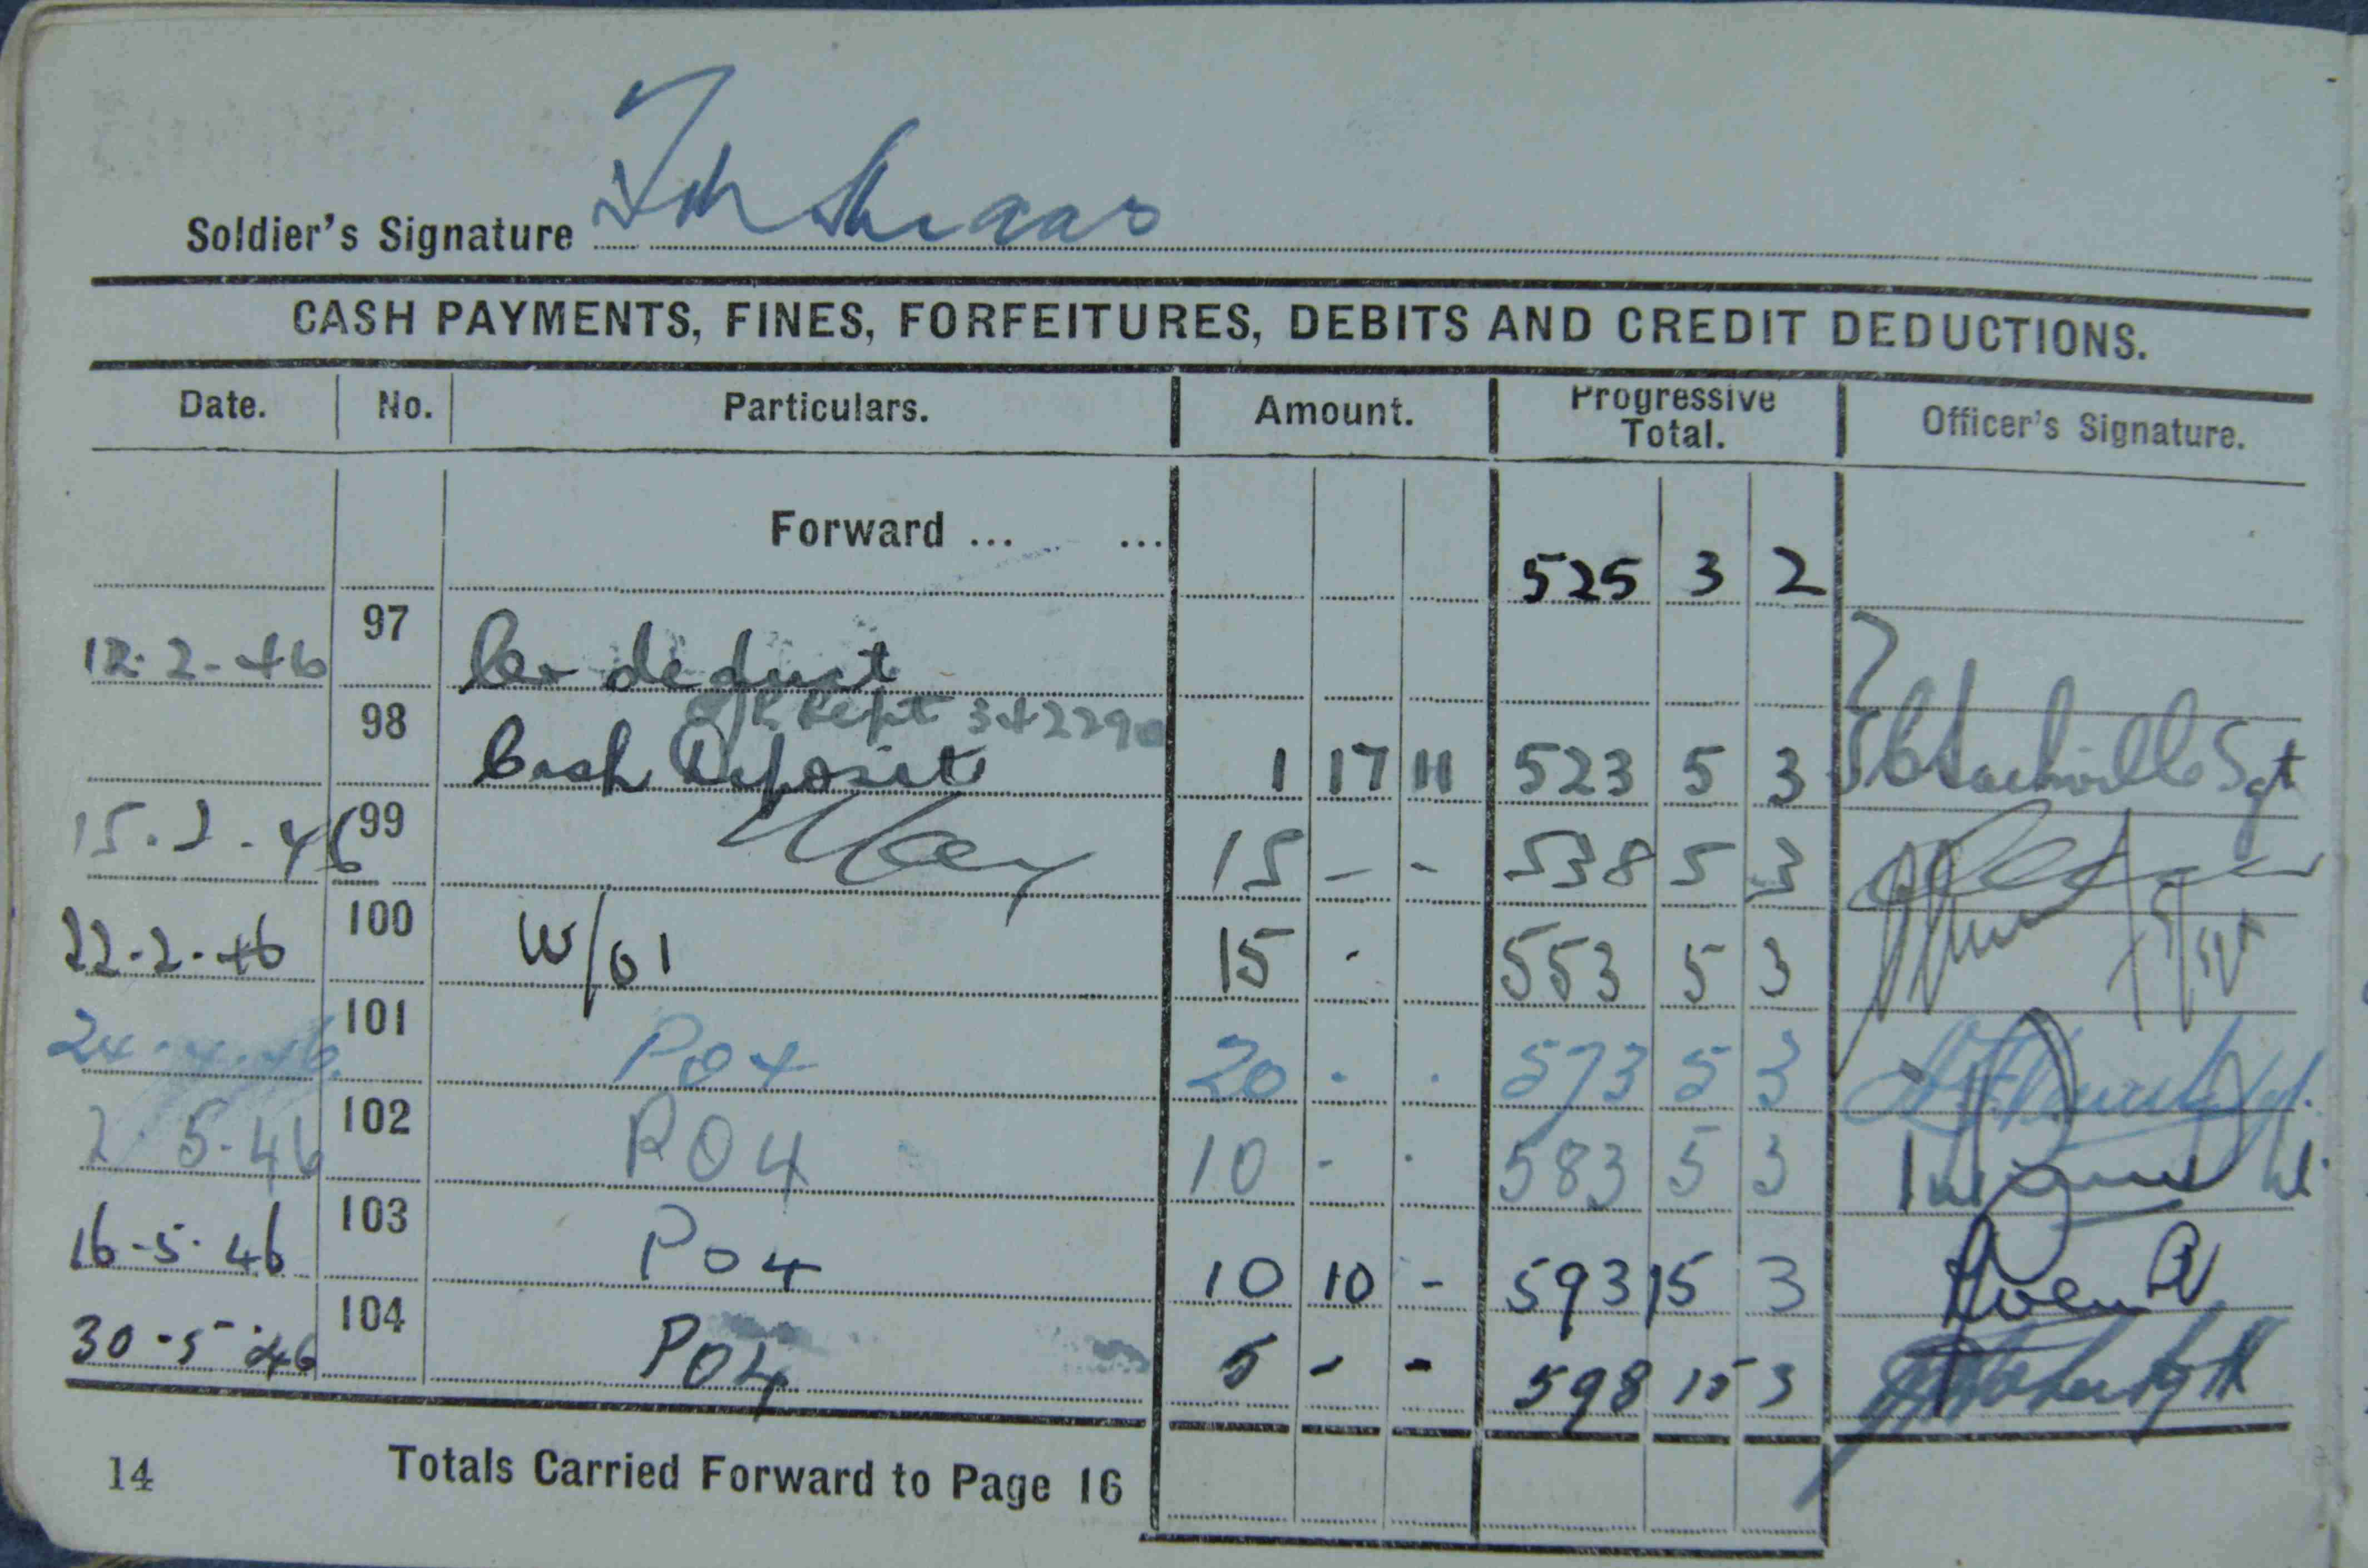 Soldier's Signature
CASH PAYMENTS, FINES, FORFEITURES, DEBITS AND CREDIT DEDUCTIONS.
Date. No. Particulars. Amount. Progressive Total. Officer's Signature.
Forward ... ... 525 3 2
12.2.46 97 Cr deduct
98 Cash Deposit 1 17 11 523 5 3 Sgt
15.2.46 99 15 - - 538 5 3
22.2.46 100 W/O1 15 - 553 5 3
24.4.46 101 PO4 20 - - 573 5 3
2 5.46 102 PO4 10 - - 583 5 3
16.5.46 103 PO4 10 10 - 593 15 3
30.5.46 104 PO4 5 - - 598 15 3
14 Totals Carried Forward to Page 16